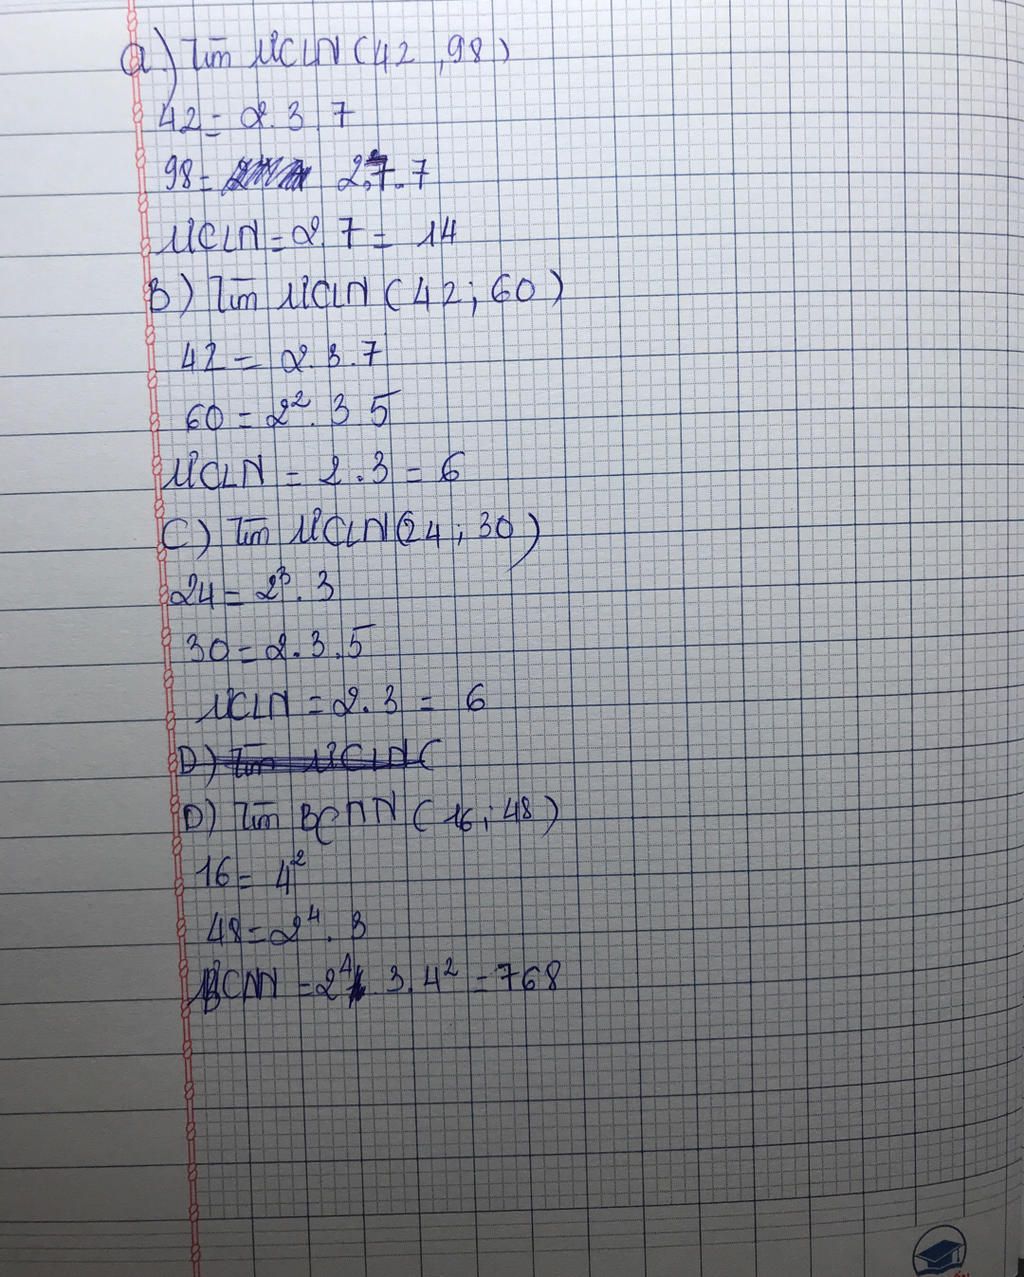 a) Tìm ƯCLN (42, 98)
42 = 2.3 7
98 = 2.7.7
ƯCLN = 2.7 = 14
B) Tìm ƯCLN (42; 60)
42 = 2.3.7
60 = 2². 3 5
ƯCLN = 2.3 = 6
C) Tìm ƯCLN (24; 30)
24 = 2³.3
30 = 2.3.5
ƯCLN = 2.3 = 6
D) Tìm ƯCLN (
D) Tìm BCNN (16; 48)
16 = 4²
48 = 2⁴.3
BCNN = 2⁴. 3. 4² = 768